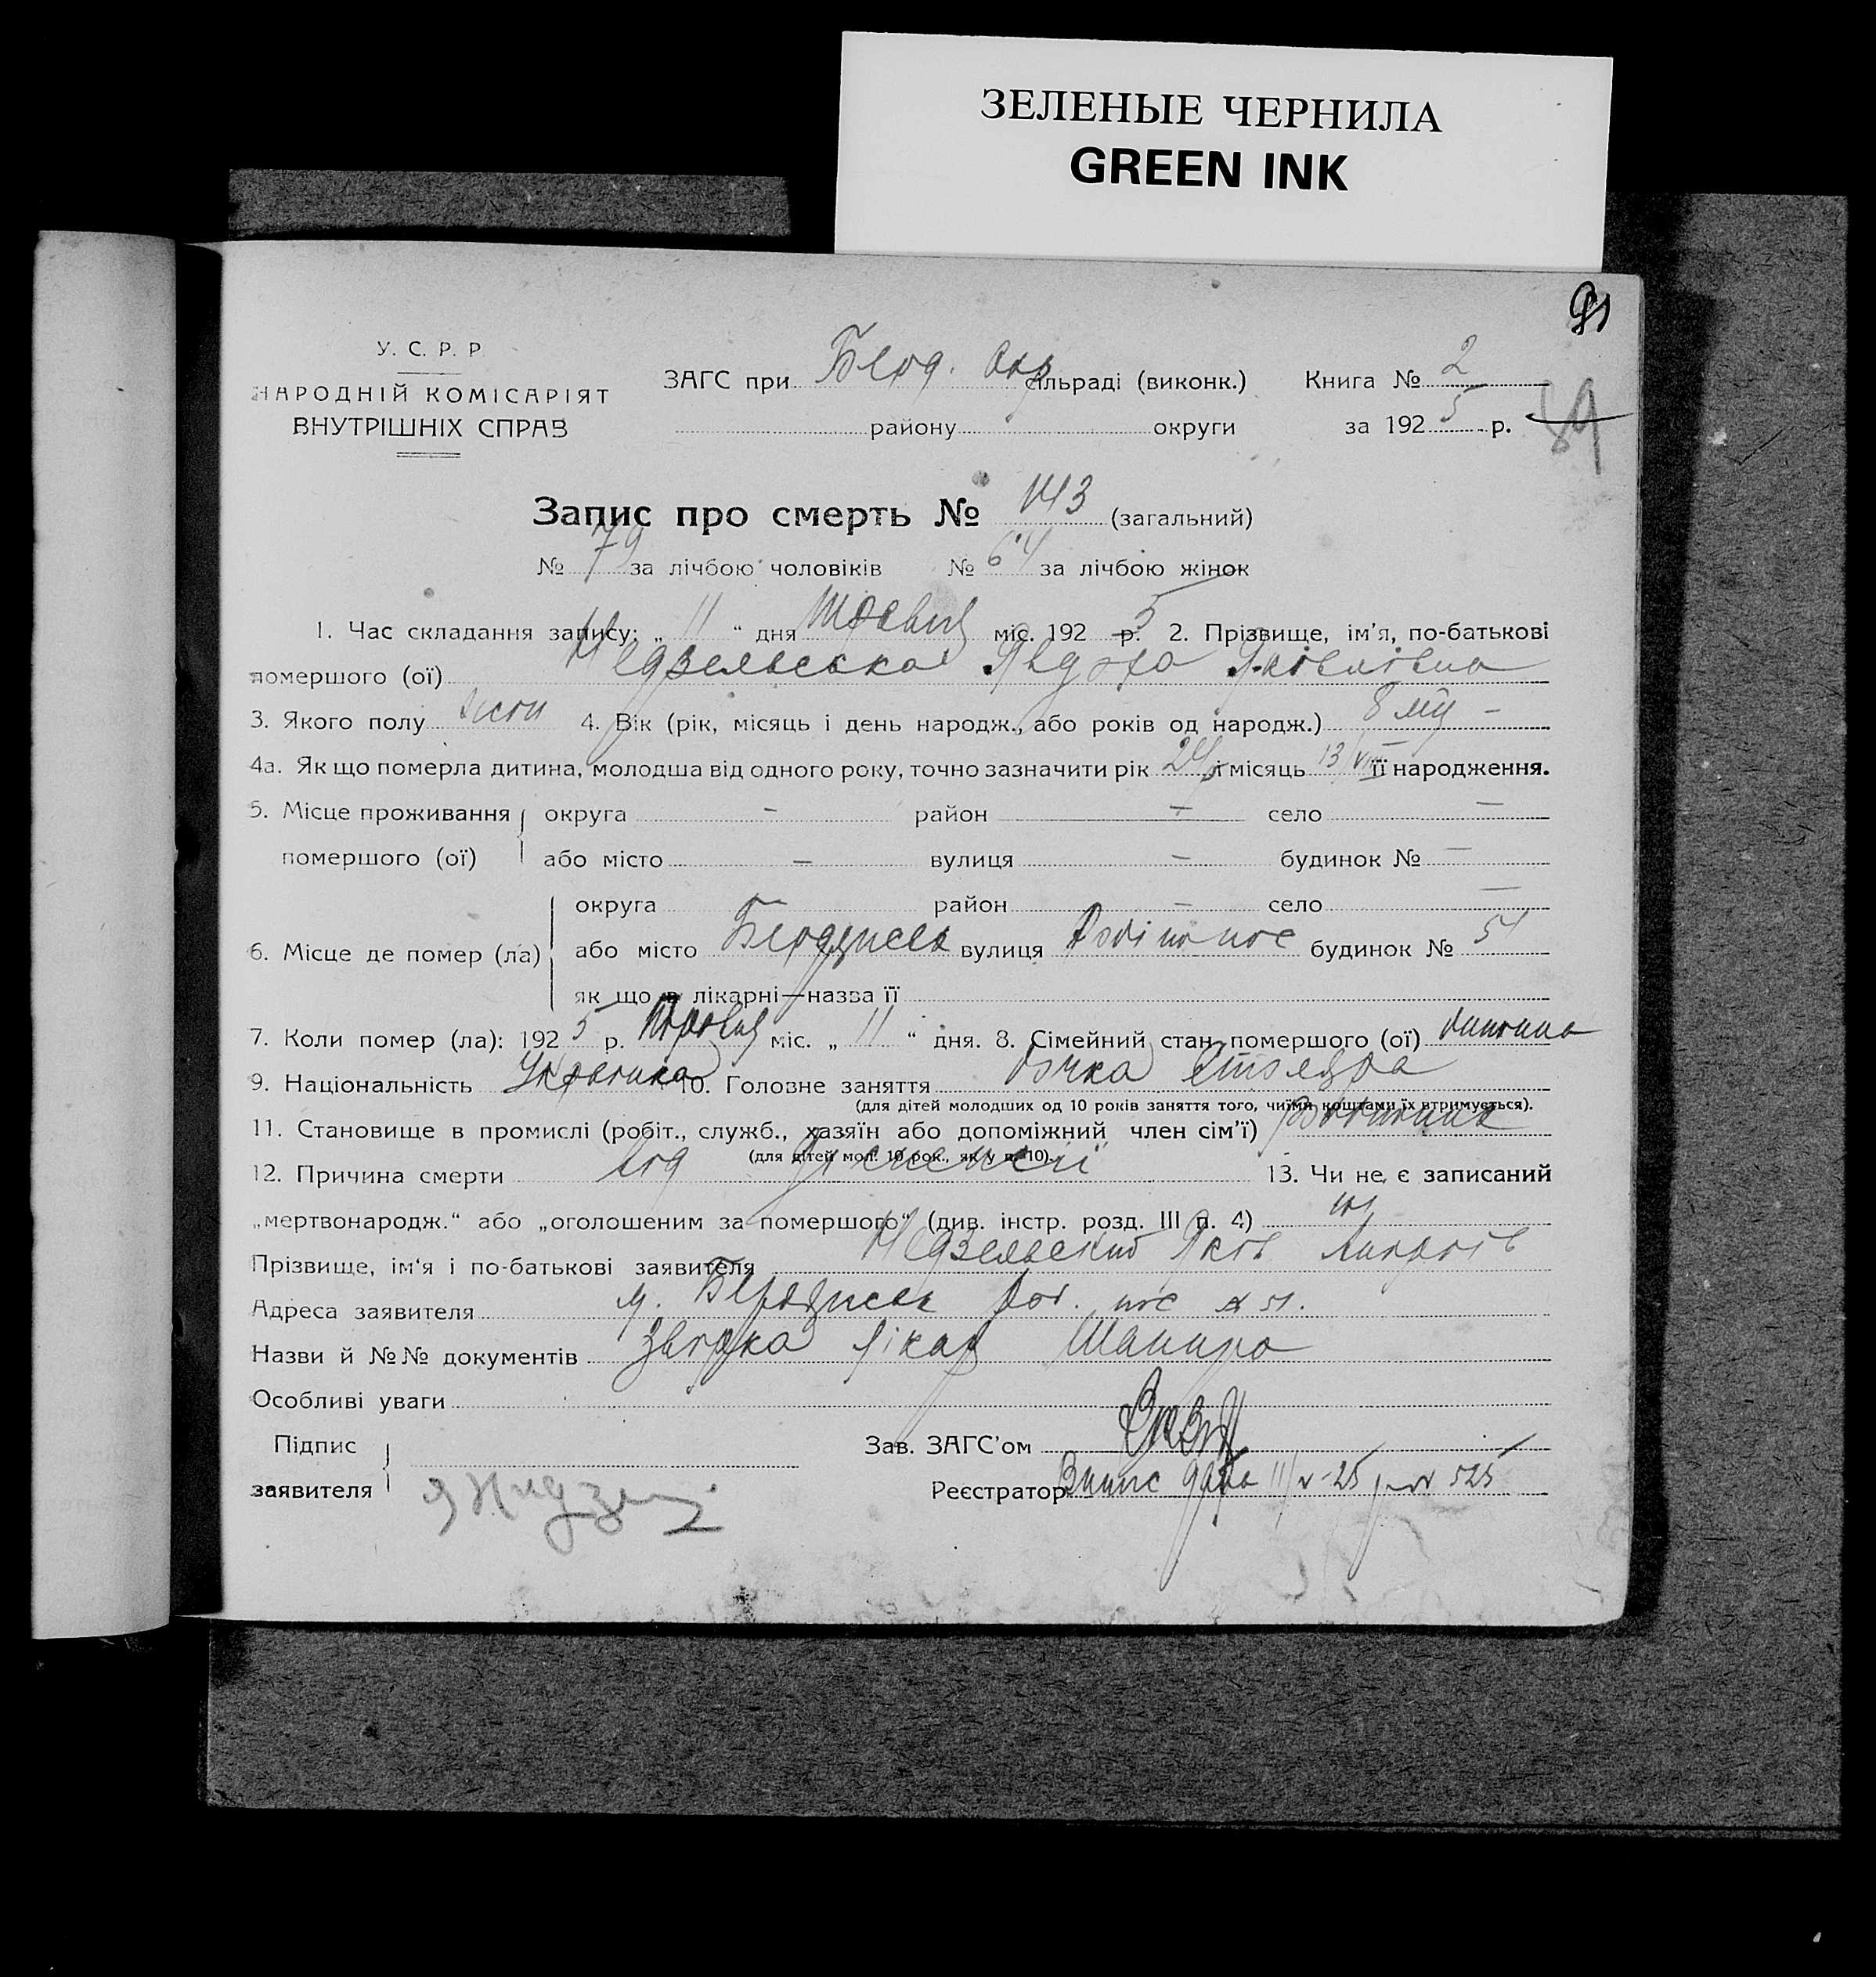 ЗЕЛЕНЫЕ ЧЕРНИЛА
GREEN INK
91
У. С. Р. Р
НАРОДНІЙ КОМІСАРІЯТ
ВНУТРІШНІХ СПРАВ
ЗАГС при Берд. Окр сільраді (виконк.) Книга № 2
району округи за 1925 р. 89
Запис про смерть № 143 (загальний)
№ 79 за лічбою чоловіків № 64 за лічбою жінок
1. Час складання запису: „ 11 “ дня Травня міс. 1925 р. 2. Прізвище, ім’я, по-батькові
помершого (ої) Недзельська Явдоха Яківлівна
3. Якого полу жін 4. Вік (рік, місяць і день народж., або років од народж.) 8 міс –
4а. Як що померла дитина, молодша від одного року, точно зазначити рік 24 і місяць 13/VIII її народження.
5. Місце проживання округа – район – село –
помершого (ої) або місто – вулиця – будинок № –
6. Місце де помер (ла) округа район – село –
або місто Бердичев вулиця будинок № 51
як що в лікарні—назва її
7. Коли помер (ла): 1925 р. Травня міс. „ 11 “ дня. 8. Сімейний стан помершого (ої) дитина
9. Національність Українка 10. Головне заняття дочка
(для дітей молодших од 10 років заняття того, чиїми коштами їх втримується).
11. Становище в промислі (робіт., служб., хазяїн або допоміжний член сім’ї)
(для дітей мол. 10 рок., як у п. 10).
12. Причина смерти од 13. Чи не є записаний
„мертвонародж.“ або „оголошеним за помершого“ (див. інстр. розд. III п. 4) ні
Прізвище, ім‘я і по-батькові заявителя Недзельский Яків
Адреса заявителя м. Бердичев пос № 51.
Назви й №№ документів Звідка лікар Шапиро
Особливі уваги
Підпис
заявителя
Зав. ЗАГС’ом
Реєстратор Випис дана 11/V-25 р. № 525